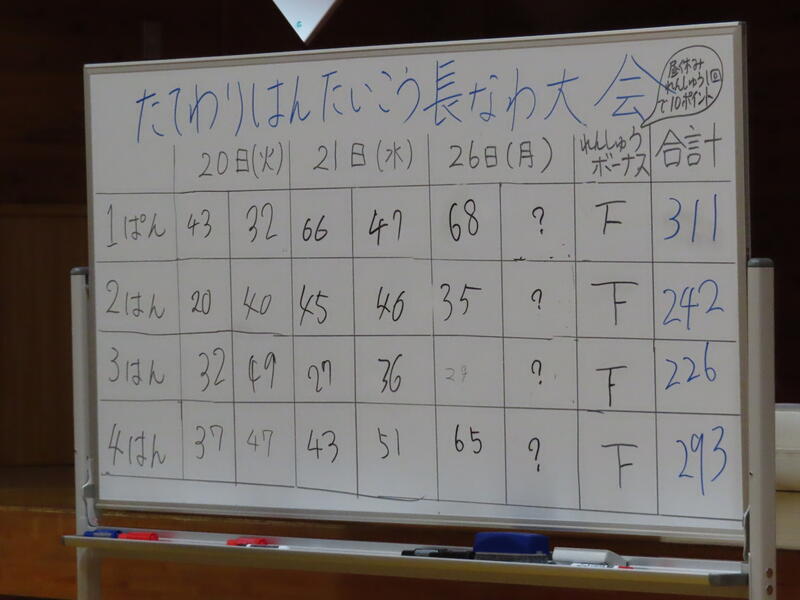 たてわりはんたいこう長なわ大会
昼休み
れんしゅう1回
で10ポイント
20日(火) 21日(水) 26日(月) れんしゅうボーナス 合計
1ぱん 43 32 66 47 68 ? 下 311
2はん 20 40 45 46 35 ? 下 242
3はん 32 49 27 36 29 ? 下 226
4はん 37 47 43 51 65 ? 下 293